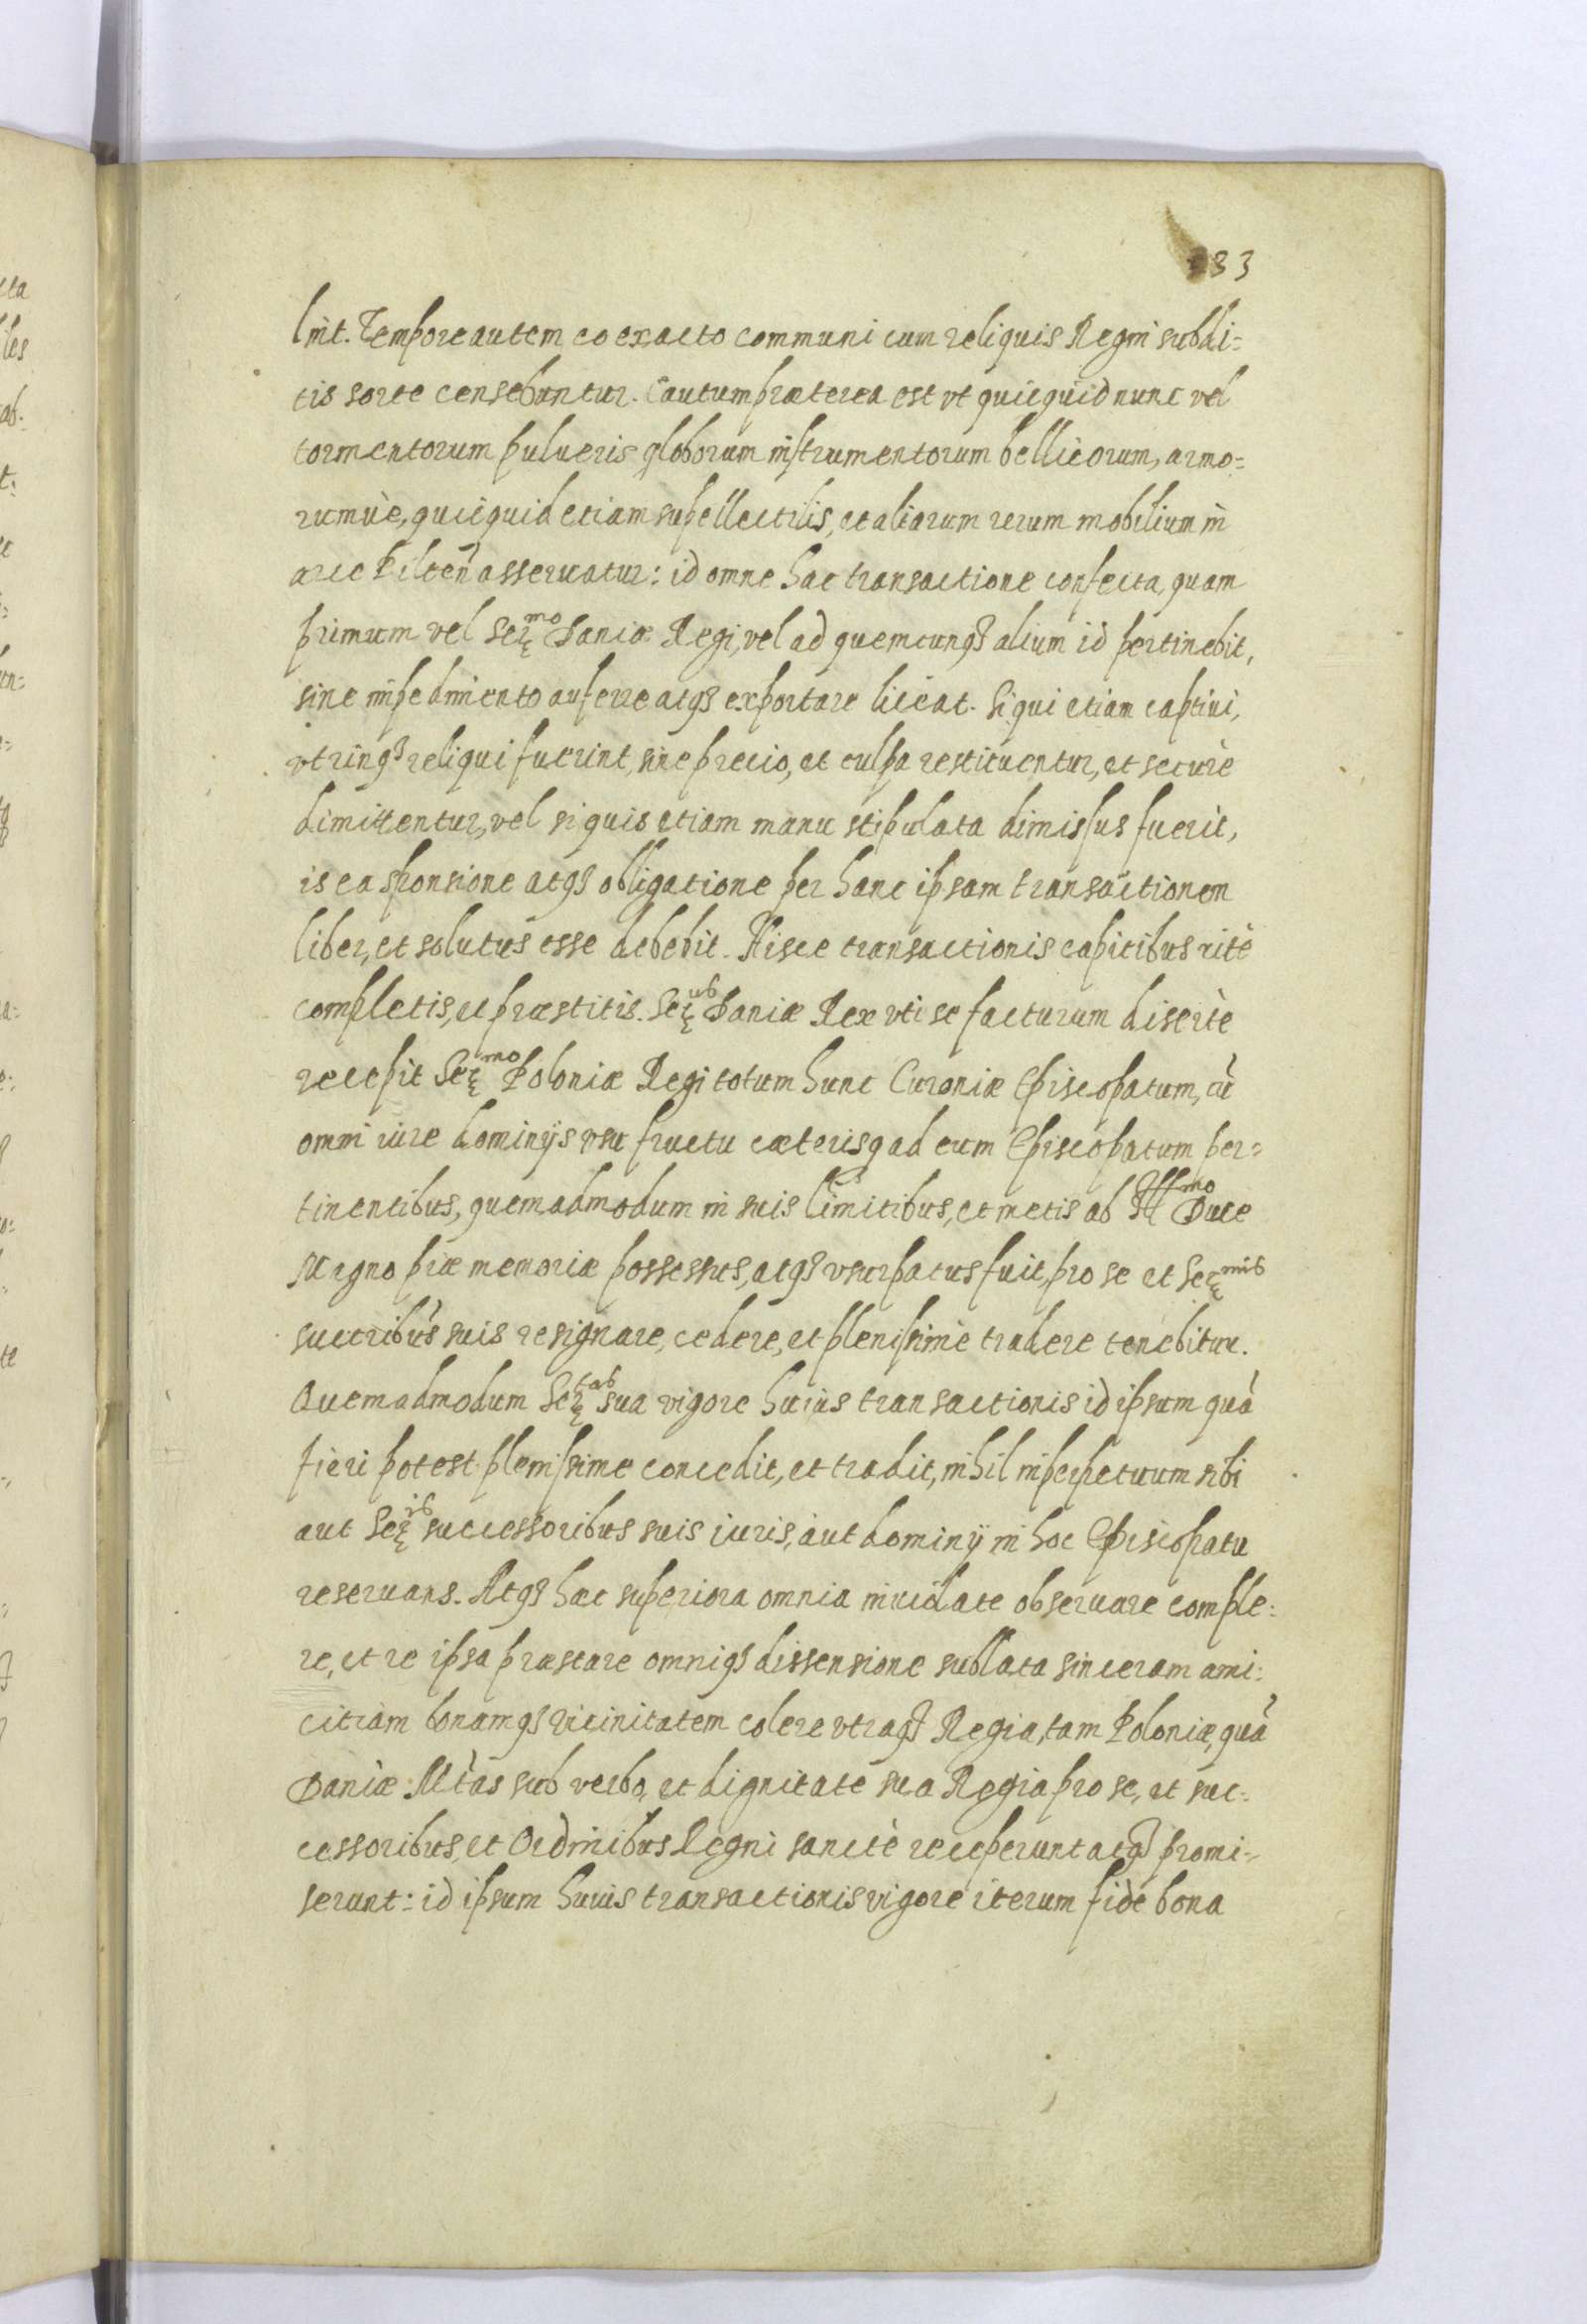 33
sint. Tempore autem eo exacto communi cum reliquis Regni subdi=
tis sorte censebuntur. Cautum præterea est vt quicquid nunc vel
tormentorum pulueris globorum instrumentorum bellicorum, armo=
rumuè, quicquid etiam supellectilis, et aliarum rerum mobilium in
arce Pilten asseruatur: id omne hac transactione confecta, quam
primum vel Ser:mo Daniæ Regi, vel ad quemcunq3 alium id pertinebit,
sine impedimento auferre atq3 exportare liceat. Si qui etiam captiui,
vtrinq3 reliqui fuerint, sine precio, et culpa restituentur, et securè
dimittentur, vel si quis etiam manu stipulata dimissus fuerit,
is ea sponsione atq3 obligatione per hanc ipsam transactionem
liber, et solutus esse debebit. Hisce transactionis capitibus ritè
completis, et præstitis. Ser:us Daniæ Rex vti se facturum disertè
recepit Ser:mo Poloniæ Regi totum hunc Curoniæ Episcopatum, cū
omni iure dominijs vsu fructu cæterisq3 ad eum Episcopatum per=
tinentibus, quemadmodum in suis limitibus, et metis ab Ill:mo Duce
Magno piæ memoriæ possessus, atq3 vsurpatus fuit, pro se et Ser:mis
succribus suis resignare, cedere, et plenissimè tradere tenebitur.
Quemadmodum Ser:tas sua vigore huius transactionis id ipsum quā
fieri potest plenissime concedit, et tradit, nihil in perpetuum sibi
aut Ser:is successoribus suis iuris, aut dominij in hoc Episcopatu
reseruans. Atq3 hæc superiora omnia inuiolate obseruare comple=
re, et re ipsa præstare omniq3 dissensione sublata sinceram ami=
citiam bonamq3 vicinitatem colere vtraq3 Regia, tam Poloniæ, quā
Daniæ Mtas sub verbo, et dignitate sua Regia pro se, et suc=
cessoribus, et Ordinibus Regni sanctè receperunt atq3 promi=
serunt: id ipsum huius transactionis vigore iterum fide bona